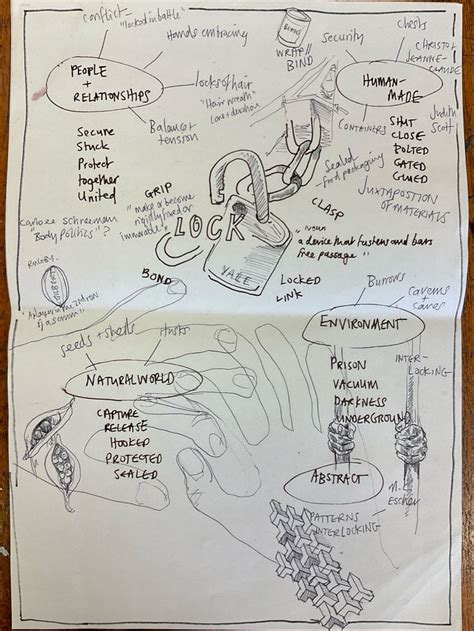 conflict-
"locked in battle"
Hands embracing
BEANS
WRAP//
BIND
security
chests
CHRISTO +
JEANNE-
CLAUDE
PEOPLE
+
RELATIONSHIPS
locks of hair
"Hair wreath"
Love + devotion
HUMAN-
MADE
Judith
Scott
Secure
Stuck
Protect
together
United
Balance +
tension
CONTAINERS
SHUT
CLOSE
BOLTED
GATED
GLUED
Sealed
-food packaging
JUXTAPOSITION
OF MATERIALS
GRIP
"make or become
rigidly fixed or
immovable"
CLASP
carolee schneeman
"Body politics"?
LOCK
"noun
a device that fastens and bars
free passage"
YALE
RUGBY
GILBERT
BOND
LOCKED
LINK
of a scrum"
Burrows
caverns +
caves
seeds + sheds
husks
ENVIRONMENT
NATURAL WORLD
PRISON
VACUUM
DARKNESS
UNDERGROUND
INTER-
LOCKING
CAPTURE
RELEASE
HOOKED
PROTECTED
SEALED
ABSTRACT
M.C.
Escher
PATTERNS
INTERLOCKING